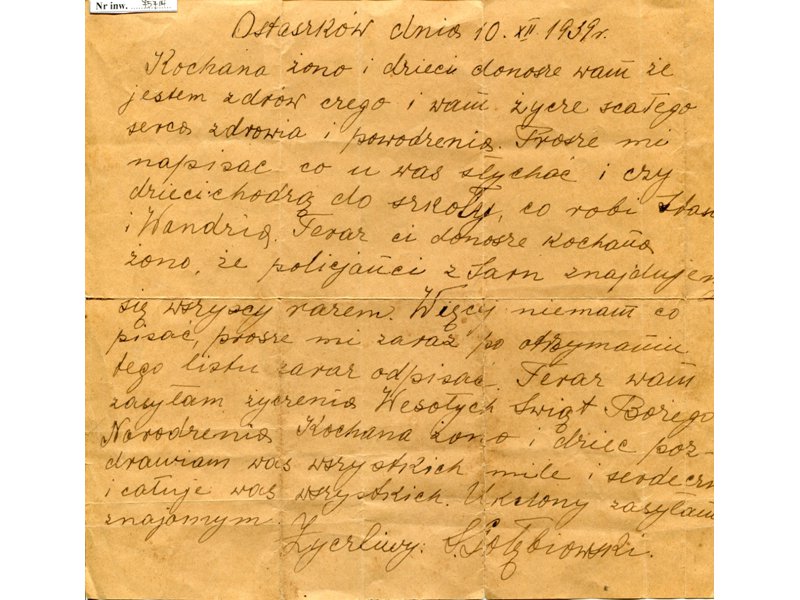 Nr inw.
Ostaszków dnia 10. XII 1939 r.
Kochana żono i dzieci donosze wam że
jestem zdrów czego i wam życze scałego
serca zdrowia i powodzenia. Prosze mi
napisać co u was słychać i czy
dzieci chodzą do szkoły, co robi
i Wandzia. Teraz ci donosze kochana
żono, że policjańci z Sarn znajdujem
się wszyscy razem. Więcy niemam co
pisać, prosze mi zaraz po otrzymaniu
tego listu zaraz odpisać. Teraz wam
zasyłam życzenia Wesołych Swiąt Bożego
Narodzenia Kochana żono i dziec poz-
drawiam was wszystkich mile i serdeczn
i całuje was wszystkich. Ukłony zasyłam
znajomym.
Zyczliwy: S. Gołębiowski.